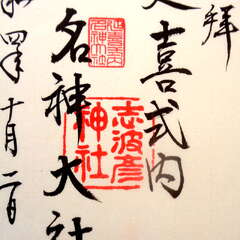 拝
喜式内
志波彦
神社
延喜式内
名神大社
名神大社
和四年十月二日